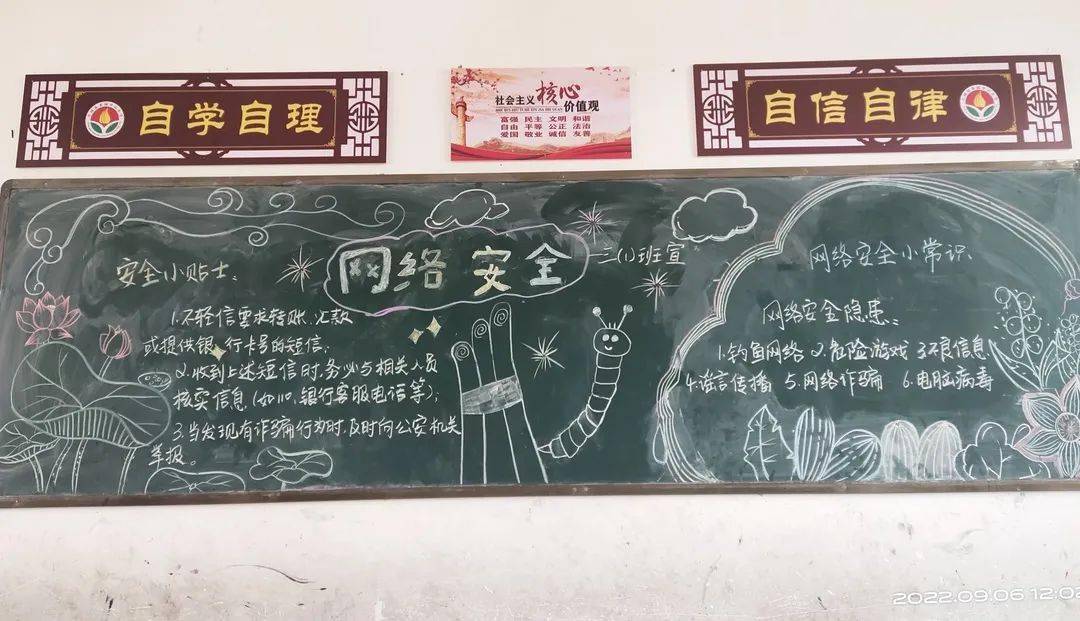 自学自理
社会主义核心价值观
富强 民主 文明 和谐
自由 平等 公正 法治
爱国 敬业 诚信 友善
自信自律
网络安全
三(1)班宣
安全小贴士:
1.不轻信要求转账、汇款
或提供银行卡号的短信;
2.收到上述短信时,务必与相关人员
核实信息(如110、银行客服电话等);
3.当发现有诈骗行为时,及时向公安机关
举报。
网络安全小常识
网络安全隐患:
1.钓鱼网络 2.危险游戏 3.不良信息
4.谣言传播 5.网络诈骗 6.电脑病毒
2022.09.06 12:02